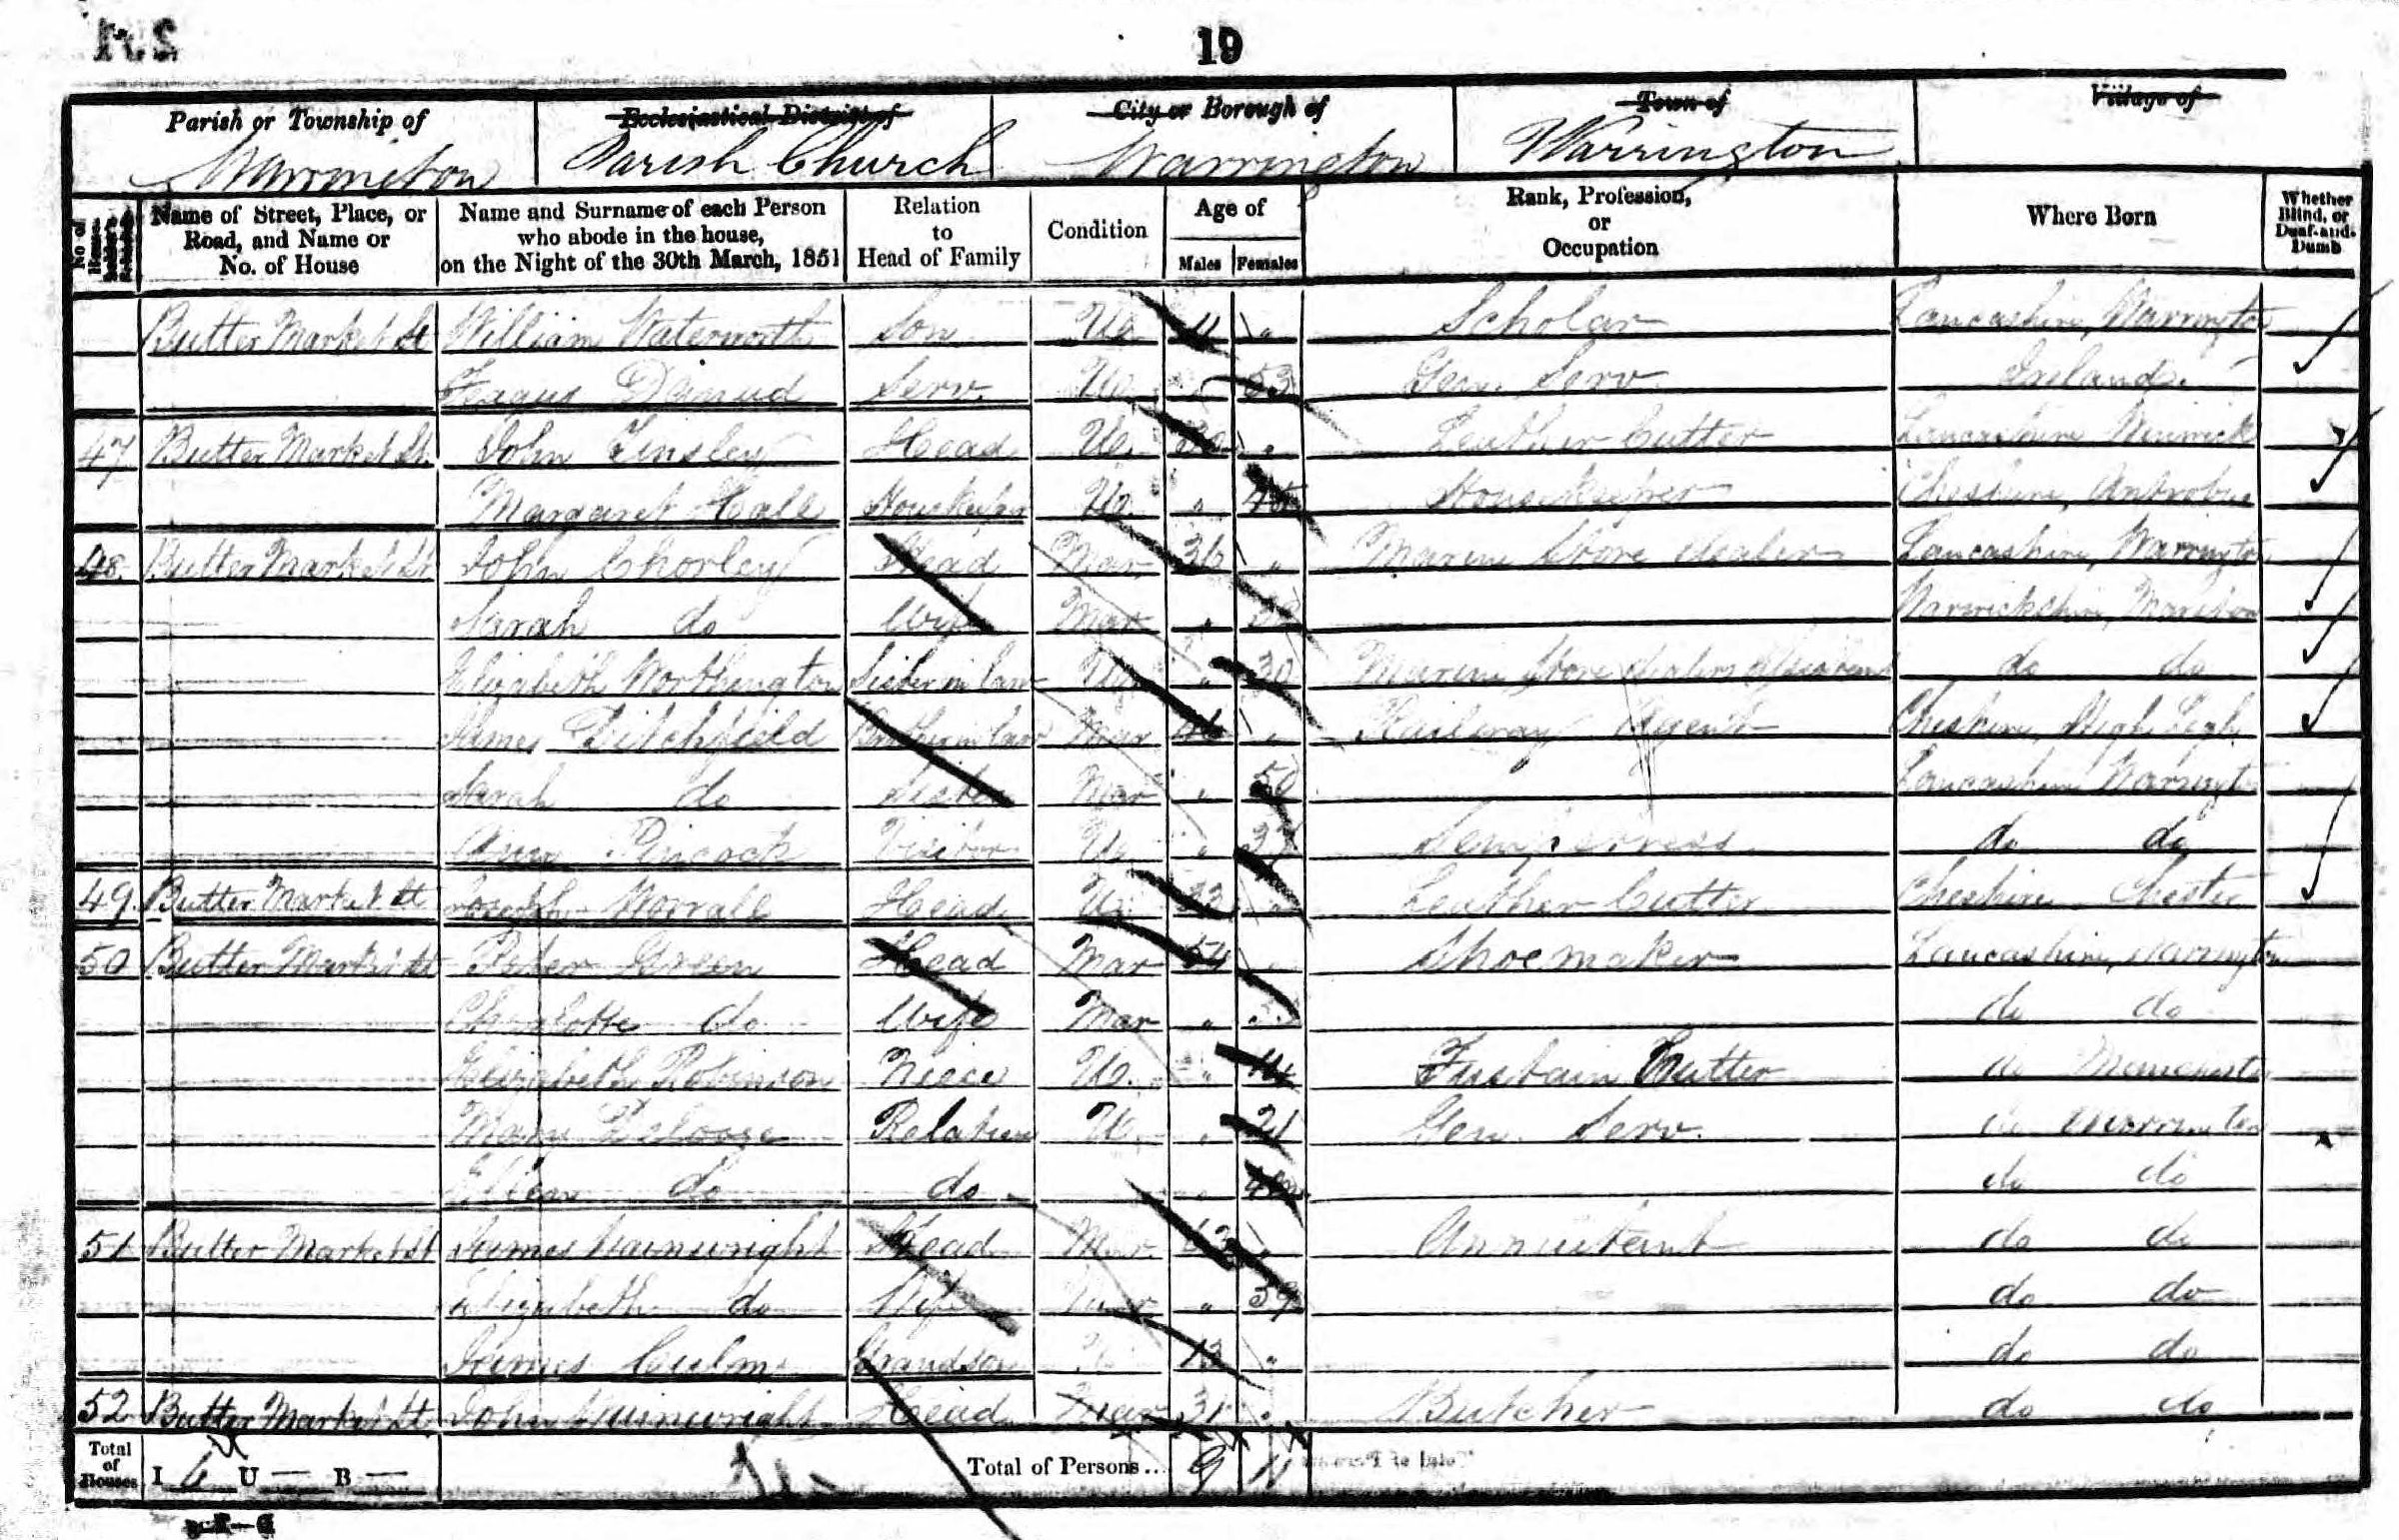 19
Parish or Township of Ecclesiastical District of City or Borough of Town of Village of
Warrington Parish Church Warrington Warrington
No. of House-holder's Schedule Name of Street, Place, or Road, and Name or No. of House Name and Surname of each Person who abode in the house, on the Night of the 30th March, 1851 Relation to Head of Family Condition Age of Males Females Rank, Profession, or Occupation Where Born Whether Blind, or Deaf-and-Dumb
Butter Market St William Waterworth Son U. 11 " Scholar Lancashire, Warrington
Serv. U. 53 Gen. Serv. Ireland.
47 Butter Market St. John Tinsley Head U. " Leather Cutter Lancashire Winwick
Margaret Hall Housekeeper U. " Housekeeper Cheshire, Antrobus
48 Butter Market St John Chorley Head Mar. 36 " Marine Store dealer Lancashire, Warrington
Sarah do Wife Mar " Warwickshire,
Elizabeth Worthington Sister in law U. " 30 Marine Store dealers Assistant do do
James Ditchfield Brother in law Mar " Railway Agent Cheshire, High Legh
Sarah do Sister Mar " 50 Lancashire Warrington
Ann Pincock Visitor U. " do do
49 Butter Market St Joseph Worrall Head U. 23 " Leather Cutter Cheshire Chester
50 Butter Market St Peter Green Head Mar 54 " Shoemaker Lancashire, Warrington
Charlotte do Wife Mar " do do
Elizabeth Robinson Niece U. " 14 Fustain Cutter do Manchester
Mary Relation U. " 21 Gen. Serv. do Warrington
Ellen do do " do do
51 Butter Market St James Wainwright Head Mar. 63 " Annuitant do do
Elizabeth do Wife Mar " 59 do do
James Culm Grandson 13 " do do
52 Butter Market St John Wainwright Head Mar 31 " Butcher do do
Total of Houses I 6 U — B — Total of Persons... 9 11